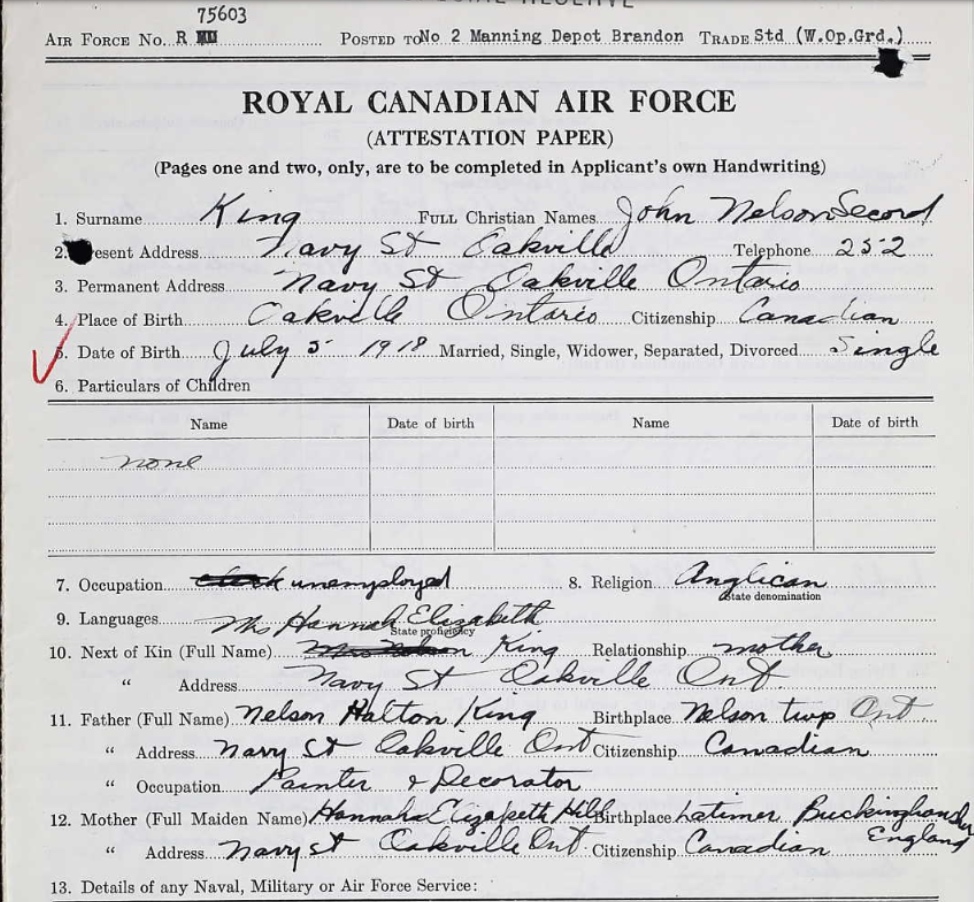 75603
AIR FORCE NO. R POSTED TO No 2 Manning Depot Brandon TRADE Std (W.Op.Grd.)
ROYAL CANADIAN AIR FORCE
(ATTESTATION PAPER)
(Pages one and two, only, are to be completed in Applicant's own Handwriting)
1. Surname King FULL Christian Names John Nelson Secord
2. esent Address Navy St Oakville Telephone 252
3. Permanent Address Navy St Oakville Ontario
4. Place of Birth Oakville Ontario Citizenship Canadian
5. Date of Birth July 5 1918 Married, Single, Widower, Separated, Divorced Single
6. Particulars of Children
Name Date of birth Name Date of birth
none
7. Occupation unemployed 8. Religion Anglican
State denomination
9. Languages Mrs Hannah Elizabeth
State proficiency
10. Next of Kin (Full Name) King Relationship mother
" Address Navy St Oakville Ont.
11. Father (Full Name) Nelson Halton King Birthplace Nelson twp Ont
" Address Navy St Oakville Ont Citizenship Canadian
" Occupation Painter & Decorator
12. Mother (Full Maiden Name) Hannah Elizabeth Hill Birthplace Latimer Buckinghamshire
England
" Address Navy St Oakville Ont. Citizenship Canadian
13. Details of any Naval, Military or Air Force Service: